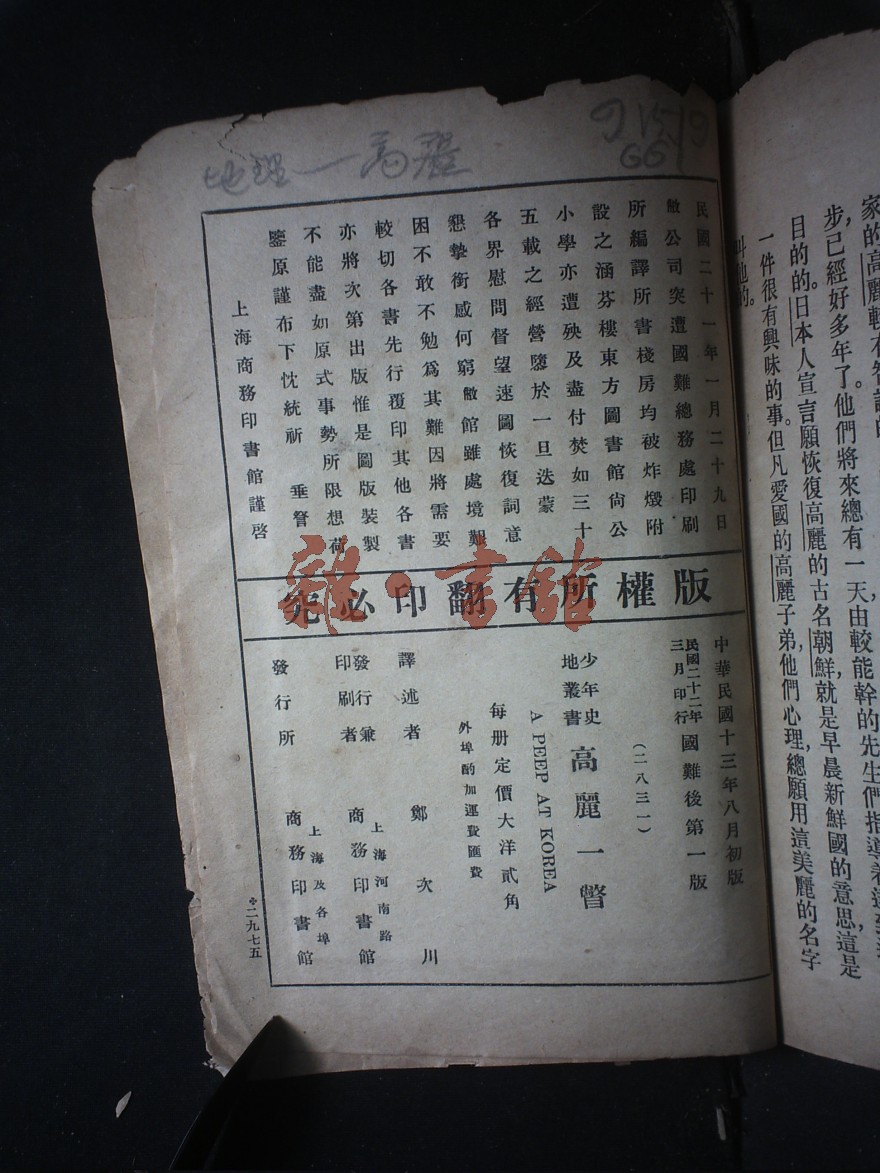 地理一高麗
915.19
G6
民國二十一年一月二十九日
敝公司突遭國難總務處印刷
所編譯所書棧房均被炸燬附
設之涵芬樓東方圖書館尙公
小學亦遭殃及盡付焚如三十
五載之經營隳於一旦迭蒙
各界慰問督望速圖恢復詞意
懇摯銜感何窮敝館雖處境艱
困不敢不勉爲其難因將需要
較切各書先行覆印其他各書
亦將次第出版惟是圖版裝製
不能盡如原式事勢所限想荷
鑒原謹布下忱統祈 垂詧
上海商務印書館謹啓
版權所有翻印必究
雜·書館
中華民國十三年八月初版
民國二十二年三月印行國難後第一版
(二八三一)
少年史地叢書 高麗一瞥
A PEEP AT KOREA
每册定價大洋貳角
外埠酌加運費匯費
譯述者 鄭次川
發行兼印刷者 上海河南路 商務印書館
發行所 上海及各埠 商務印書館
※二九七五
步,已經好多年了。他們將來總有一天由較能幹的先生們指導着
目的的。日本人宣言願恢復高麗的古名朝鮮,就是早晨新鮮國的意思,這是
一件很有興味的事。但凡愛國的高麗子弟,他們心理,總願用這美麗的名字
叫他的。